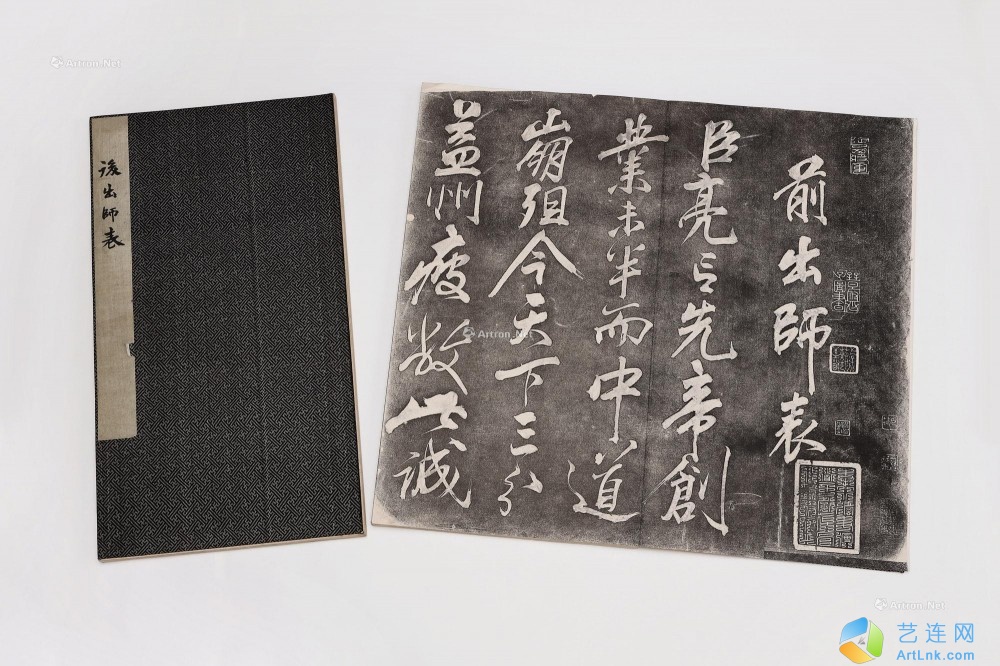 後出師表
前出師表
臣亮言先帝創
業未半而中道
崩殂今天下三分
益州疲敝此誠
Artron.Net
Artron.Net
Artron.Net
艺连网
ArtLnk.com